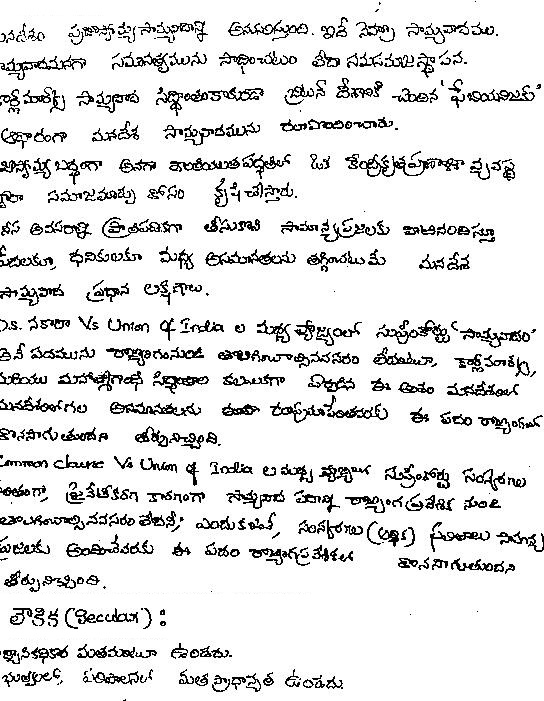 మనదేశం ప్రజాస్వామ్య సామ్యవాదాన్ని అనుసరిస్తుంది. ఇదే నెహ్రూ సామ్యవాదము.
సామ్యవాదమనగా సమానత్వమును సాధించటం లేదా సమసమాజ స్థాపన.
కార్ల్ మార్క్స్ సామ్యవాద సిద్ధాంతం కాకుండా బ్రిటన్ దేశానికి చెందిన 'ఫేబియనిజం'
ఆధారంగా మనదేశ సామ్యవాదమును రూపొందించారు.
అనగా పద్ధతిలో ఒక కేంద్రీకృత ప్రణాళికా వ్యవస్థ
ద్వారా సమాజమార్పు కోసం కృషి చేస్తారు.
కనీస అవసరాన్ని ప్రాతిపదికగా తీసుకొని సామాన్య ప్రజలకు వాటినందిస్తూ
పేదలకూ, ధనికులకూ మధ్య అసమానతలను తగ్గించటమే మనదేశ
సామ్యవాద ప్రధాన లక్షణాలు.
D.S. నకారా Vs Union of India ల మధ్య వ్యాజ్యంలో సుప్రీంకోర్టు 'సామ్యవాదం'
అనే పదమును రాజ్యాంగం నుండి తొలగించాల్సినవసరం లేదంటూ, కార్ల్ మార్క్స్,
మరియు మహాత్మాగాంధీ సిద్ధాంతాల కలయికగా ఏర్పడిన ఈ అంశం మనదేశంలో
మనదేశంలోగల అసమానతలను ఈ పదం రాజ్యాంగంలో
కొనసాగుతుందని తీర్పునిచ్చింది.
Common clause Vs Union of India ల మధ్య వ్యాజ్యంలో సుప్రీంకోర్టు సంస్కరణల
ఫలితంగా, ప్రైవేటీకరణ కారణంగా సామ్యవాద పదాన్ని రాజ్యాంగ ప్రవేశిక నుండి
తొలగించాల్సినవసరం లేదనీ, ఎందుకంటే, సంస్కరణల (ఆర్థిక) ఫలితాలు
ప్రజలకు అందించేవరకు ఈ పదం రాజ్యాంగ ప్రవేశికలో కొనసాగుతుందని
తీర్పునిచ్చింది.
లౌకిక (Secular) :
రాజ్యానికి అధికార మతమంటూ ఉండదు.
పరిపాలనలో మత ప్రాధాన్యత ఉండదు.